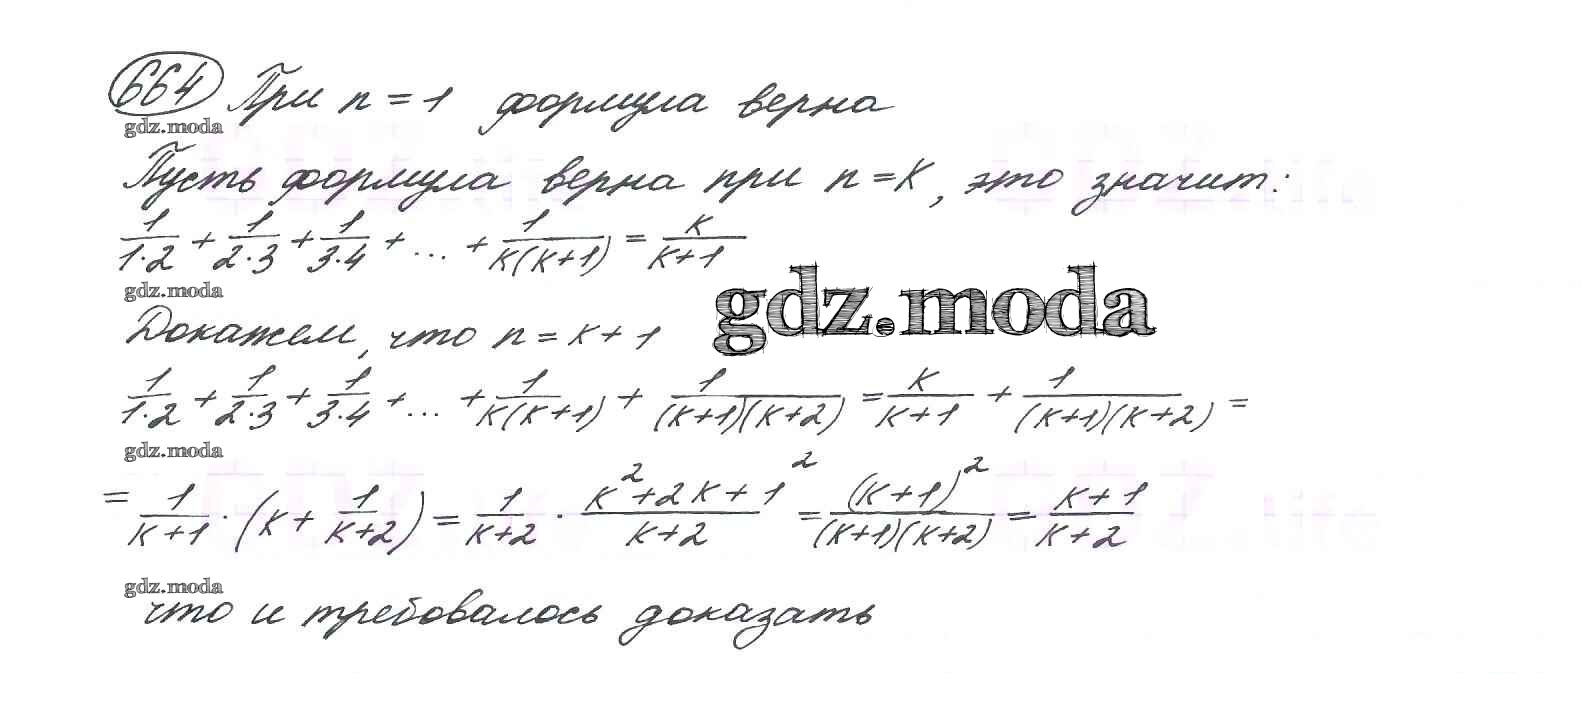 664 При n = 1 формула верна
gdz.moda
Пусть формула верна при n = K, это значит:
1/(1·2) + 1/(2·3) + 1/(3·4) + ... + 1/(K(K+1)) = K/(K+1)
gdz.moda
gdz.moda
Докажем, что n = K + 1
1/(1·2) + 1/(2·3) + 1/(3·4) + ... + 1/(K(K+1)) + 1/((K+1)(K+2)) = K/(K+1) + 1/((K+1)(K+2)) =
gdz.moda
= 1/(K+1) · (K + 1/(K+2)) = 1/(K+2) · (K²+2K+1²)/(K+2) = (K+1)²/((K+1)(K+2)) = (K+1)/(K+2)
gdz.moda
что и требовалось доказать